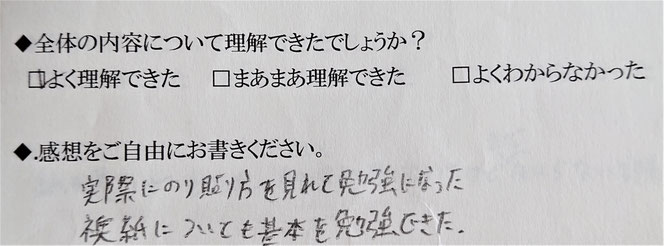 ◆全体の内容について理解できたでしょうか？
☑よく理解できた □まあまあ理解できた □よくわからなかった
◆.感想をご自由にお書きください。
実際にのり貼り方を見れて勉強になった
襖紙についても基本を勉強できた.